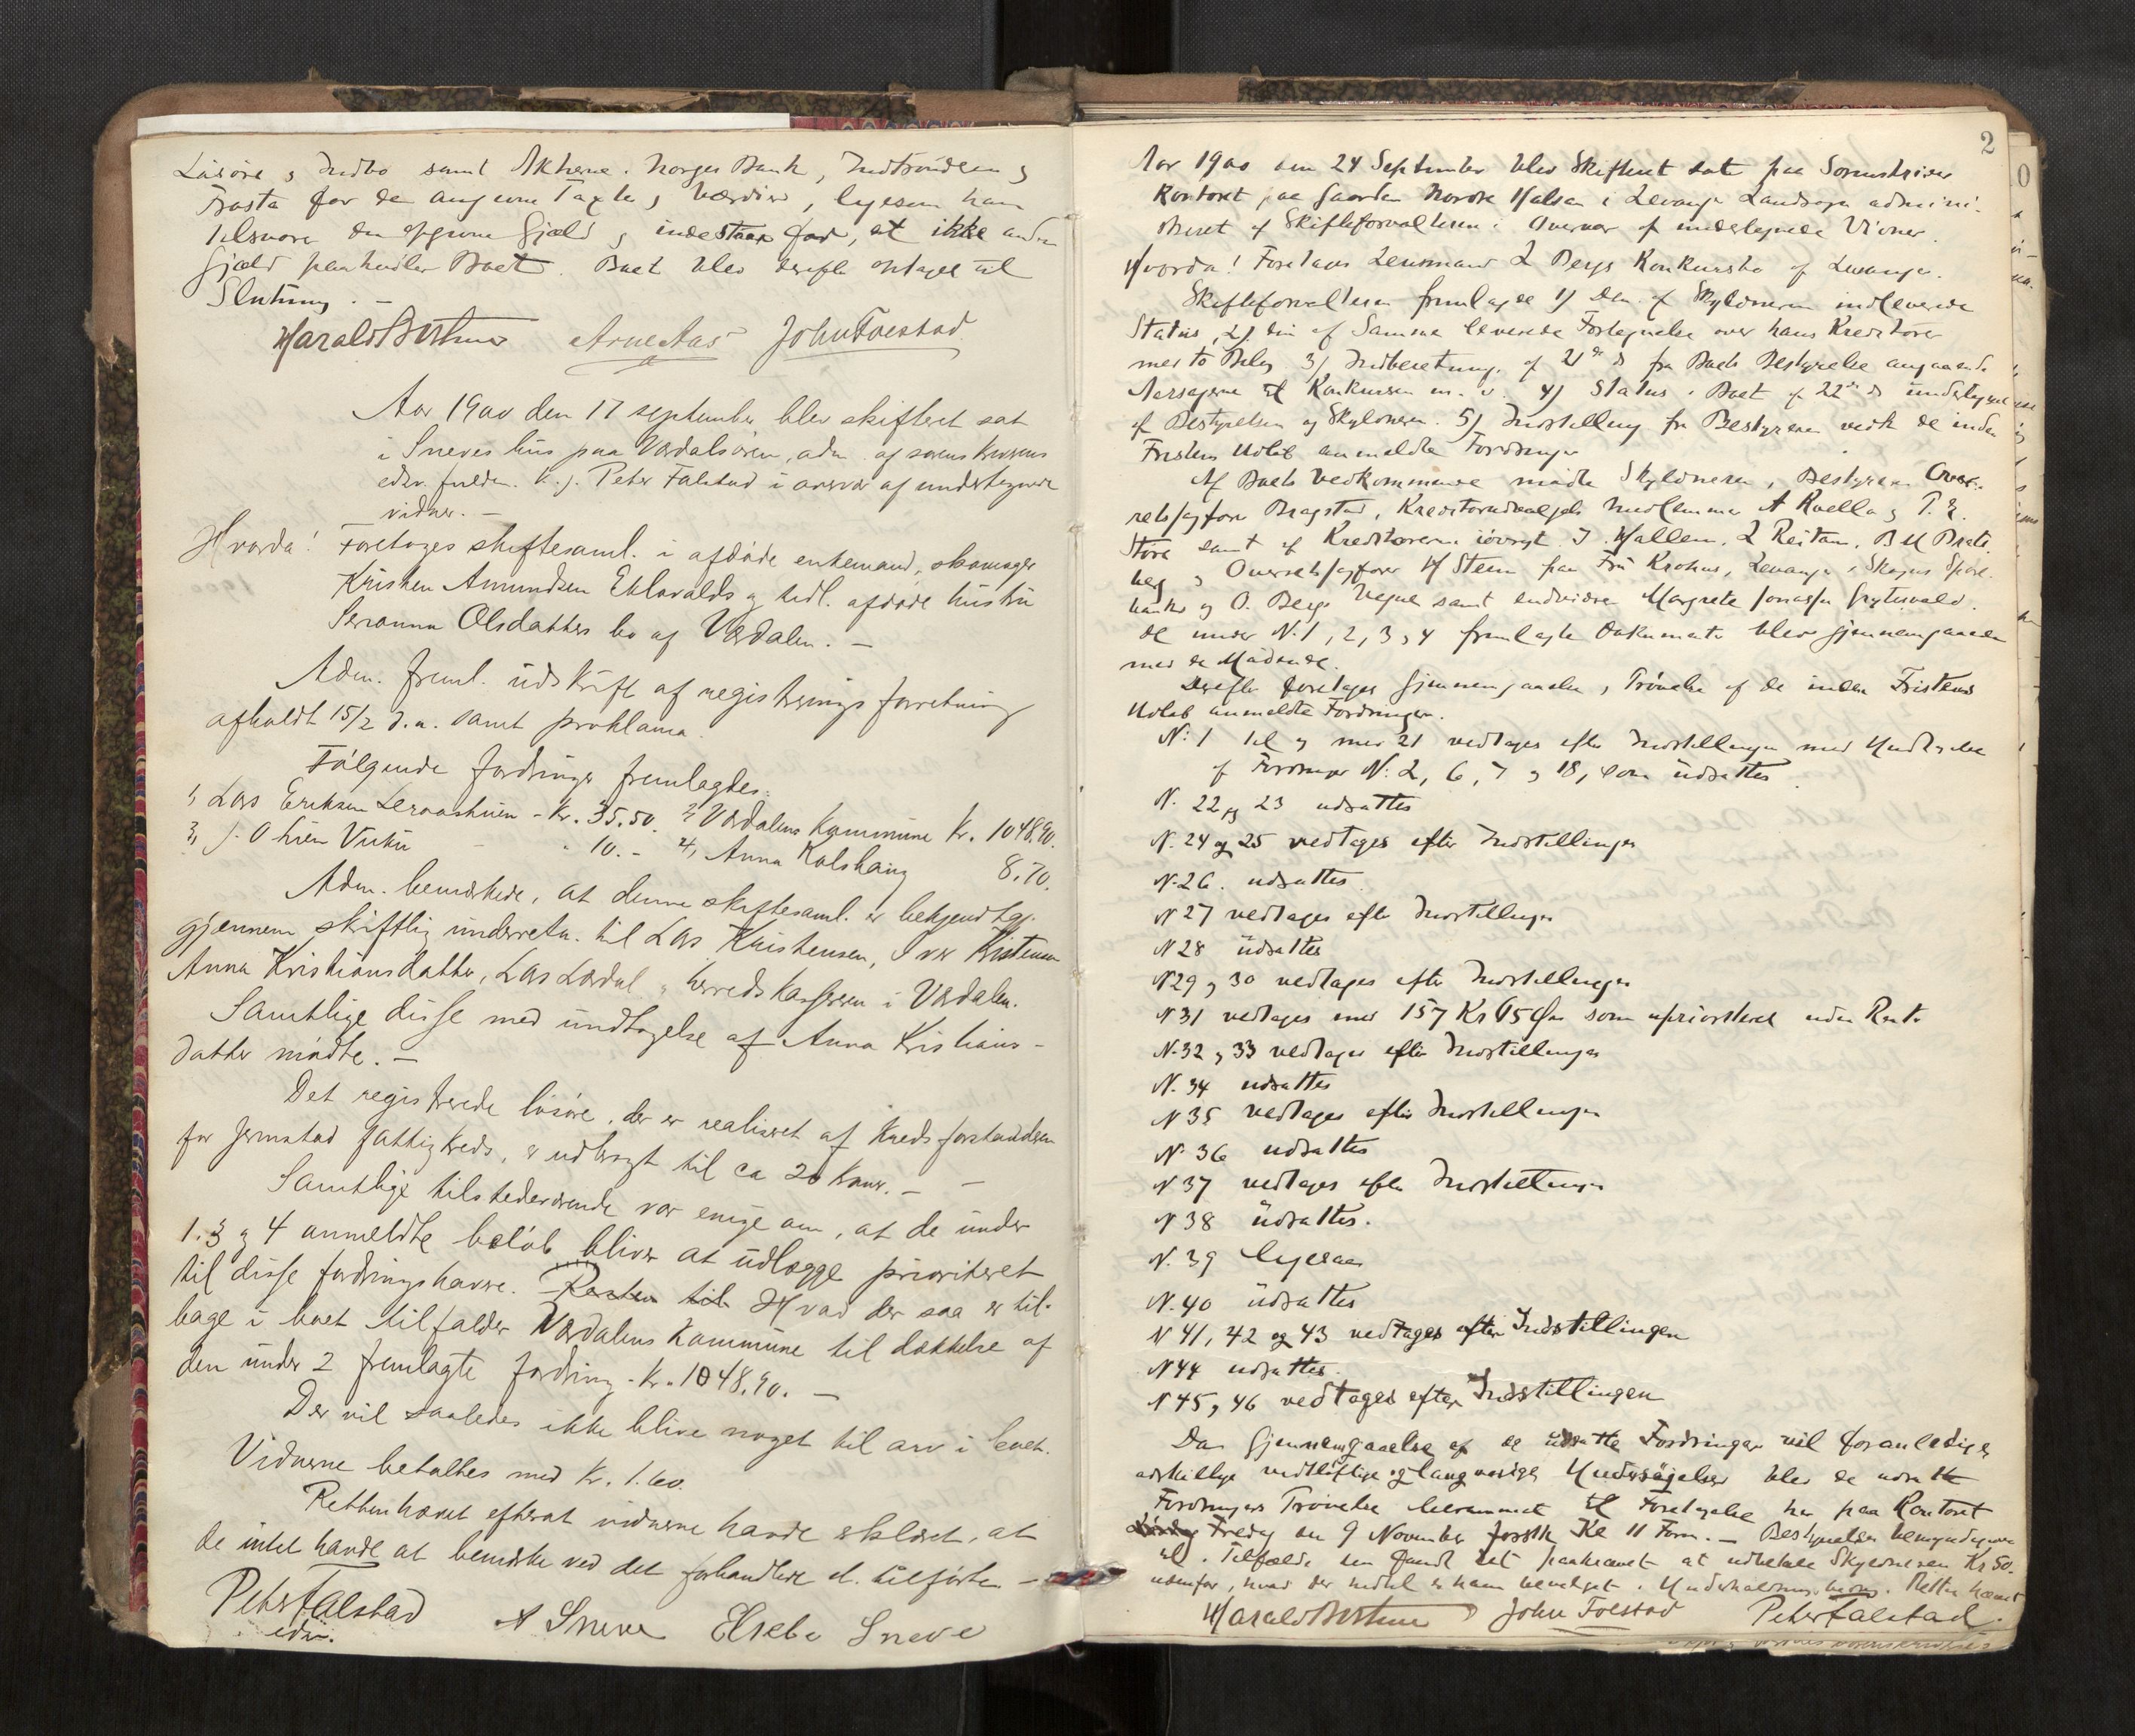 Løsøre og Indbo samt Aktierne i Norges Bank, Indtrøndelag og
Frosta for de angivne Taxter og Værdier, ligesom han
tilsvarer den opgivne Gjæld og indestaar for, at ikke anden
Gjæld paahviler Boet. Boet blev derefter optaget til
Slutning. –
Harald Bothner Arne Aas John Tolstad
Aar 1900 den 17 september blev skifteret sat
i Sneves hus paa Værdalsøren, adm. af sorenskriverens
edsv. fuldm. k. j. Peter Falstad i overvær af undertegnede
vidner. –
Hvorda! Foretoges skiftesaml. i afdøde enkemand, skomager
Kristen Amundsen Eklovalds og tidl. afdøde hustru
Seranna Olsdatters bo af Værdalen. –
Adm. freml. udskrift af registreringsforretning
afholdt 15/2 d.a. samt proklama.
Følgende fordringer fremlagdes:
1, Lars Eriksen Leraashuen - Kr. 35.50. 2, Værdalens Kommune Kr. 1048.90.
3, J. O Lien Vuku - " 10. - 4, Anna Kolshaug 8.70.
Adm. bemærkede, at denne skiftesaml. er bekjendtgj.
gjennem skriftlig underretn. til Lars Kristensen, Iver Kristensen
Anna Kristiansdatter, Lars Lerdal og herredskassereren i Værdalen.
Samtlige disse med undtagelse af Anna Kristians-
datter mødte. –
Det registrerede løsøre, der er realiseret af kredsforstanderen
for Jermstad fattigkreds, er udbragt til ca 20 kroner. – –
Samtlige tilstedeværende var enige om, at de under
1. 3 og 4 anmeldte beløb bliver at udlægge prioriteret
til disse fordringshavere. Resten til Hvad der saa er til-
bage i boet tilfalder Værdalens Kommune til dækkelse af
den under 2 fremlagte fordring - Kr. 1048.90. –
Der vil saaledes ikke blive noget til arv i boet.
Vidnerne betaltes med Kr. 1.60.
Retten hævet efterat vidnerne havde erklæret, at
de intet havde at bemærke ved det forhandlede el. tilførte –
Peter Falstad A Sneve Elseba Sneve
edsv.
2
Aar 1900 den 24 September blev Skifteret sat paa Sorenskriver
Kontoret paa Gaarden Nordre Halsan i Levanger Landsogn admini-
streret af Skifteforvalteren i Overvær af undertegnede Vidner.
Hvorda! Foretages Lensmand L Bergs Konkursbo af Levanger.
Skifteforvalteren fremlagde 1) Den af Skyldneren indleverede
Status, 2) den af Samme leverede Fortegnelse over hans Kreditorer
med to Bilag 3) Indberetning af 21de ds fra Boets Bestyrelse angaaende
Aarsagerne til Konkursen m. v. 4) Status i Boet af 22de ds undertegnet
af Bestyrelsen og Skyldneren. 5) Indstilling fra Bestyreren vedk de inden
Fristens Udløb anmeldte Fordringer
Af Boets Vedkommende mødte Skyldneren, Bestyreren Over-
retssagfører Bragstad, Kreditorudvalgets Medlemmer A Rœlla og P. E.
Støre samt af Kreditorerne iøvrigt J. Hallem, L Reitan, B M Brate
berg og Overretssagfører H Steen paa Fru Krohns, Levanger og Skogns Spare-
banks og O. Bergs Vegne samt endvidere Margrete
De under N. 1, 2, 3 og 4 fremlagte Dokumenter blev gjennemgaaede
med de Mødende.
Derefter foretoges Gjennemgaaelse og Prøvelse af de inden Fristens
Udløb anmeldte Fordringer.
N: 1 til og med 21 vedtages efter Indstillingen med Undtagelse
af Fordringer N: 2, 6, 7 og 18, som udsattes
N. 22 og 23 udsattes
N. 24 og 25 vedtages efter Indstillingen
N. 26. udsattes.
N 27 vedtages efter Indstillingen
N 28 udsattes
N 29 og 30 vedtages efter Indstillingen
N 31 vedtages med 157 Kr 65 Øre som uprioriteret uden Rente
N. 32 og 33 vedtages efter Indstillingen
N. 34 udsattes
N 35 vedtages efter Indstillingen
N. 36 udsattes
N 37 vedtages efter Indstillingen
N 38 udsattes.
N. 39 ligesaa
N. 40 udsattes
N 41, 42 og 43 vedtages efter Indstillingen
N 44 udsattes.
N 45 og 46 vedtages efter Indstillingen
Da Gjennemgaaelse af de udsatte Fordringer vil foranledige
adskillige vidtløftige og langvarige Undersøgelser blev de udsatte
Fordringers Prøvelse berammet til Foretagelse her paa Kontoret
Lørdag Fredag den 9 November førstk Kl 11 Form. – Bestyrelsen bemyndigedes
til i Tilfælde den fandt det paakrævet at udbetale Skyldneren Kr 50.
udenfor, hvad der hidtil er ham bevilget i Underholdningsbidrag. Retten hævet
Harald Bothner John Tolstad Peter Falstad.